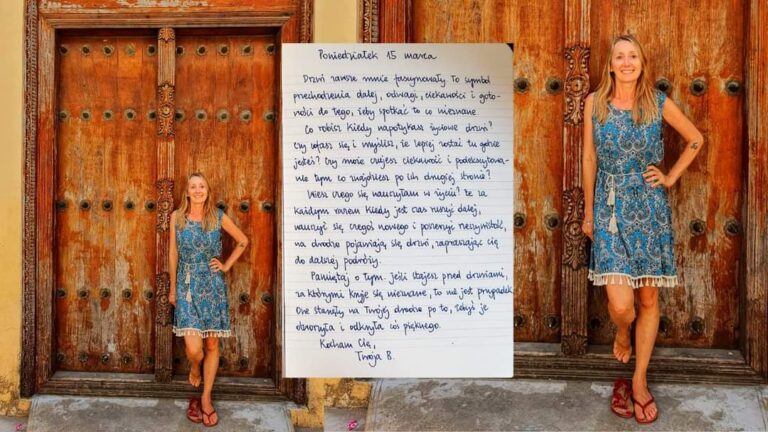 Poniedziałek 15 marca
Drzwi zawsze mnie fascynowały. To symbol
przechodzenia dalej, odwagi, ciekawości i goto-
wości do tego, żeby spotkać to co nieznane.
Co robisz kiedy napotykasz życiowe drzwi?
Czy cofasz się, i myślisz, że lepiej zostać tu gdzie
jesteś? Czy może czujesz ciekawość i podekscytowa-
nie tym co znajdziesz po ich drugiej stronie?
Wiesz czego się nauczyłam w życiu? że za
każdym razem kiedy jest czas ruszyć dalej,
nauczyć się czegoś nowego i poszerzyć rzeczywistość,
na drodze pojawiają się drzwi, zapraszając cię
do dalszej podróży.
Pamiętaj o tym. Jeśli stajesz przed drzwiami,
za którymi kryje się nieznane, to nie jest przypadek.
One stanęły na Twojej drodze po to, żebyś je
otworzyła i odkryła coś pięknego.
Kocham Cię,
Twoja B.